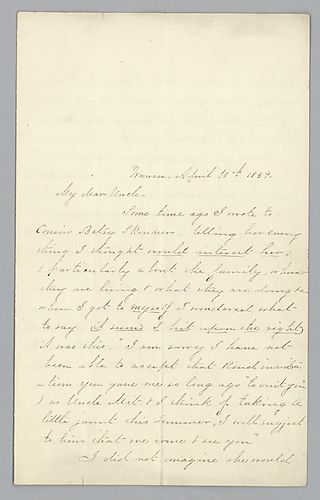 Warren. April 10th 1859.
My dear Uncle.
Some time ago I wrote to
Cousin Betsy Skinner, telling her every
thing I thought would interest her;
& particularly about the family, where
they are living & what they are doing &c
when I got to myself I wondered what
to say it seems I hit upon the right
it was this. "I am sorry I have not
been able to accept that kind invita
-tion you gave me so long ago to visit you
& as Uncle & I think of taking a
little jaunt this summer, I will suggest
to him that we come & see you"
I did not imagine she would